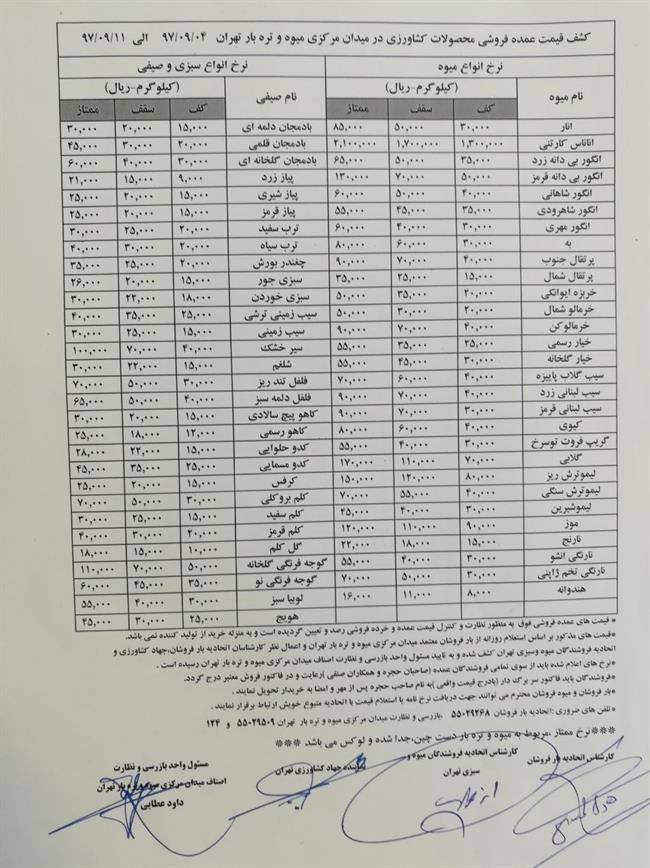 کشف قیمت عمده فروشی محصولات کشاورزی در میدان مرکزی میوه و تره بار تهران ۹۷/۰۹/۰۴ الی ۹۷/۰۹/۱۱
نرخ انواع میوه نرخ انواع سبزی و صیفی
نام میوه (کیلوگرم-ریال) نام صیفی (کیلوگرم-ریال)
کف سقف ممتاز کف سقف ممتاز
انار ۳۰,۰۰۰ ۵۰,۰۰۰ ۸۵,۰۰۰ بادمجان دلمه ای ۱۵,۰۰۰ ۲۰,۰۰۰ ۳۰,۰۰۰
آناناس کارتنی ۱,۳۰۰,۰۰۰ ۱,۷۰۰,۰۰۰ ۲,۱۰۰,۰۰۰ بادمجان قلمی ۲۰,۰۰۰ ۳۰,۰۰۰ ۴۵,۰۰۰
انگور بی دانه زرد ۳۵,۰۰۰ ۵۰,۰۰۰ ۶۵,۰۰۰ بادمجان گلخانه ای ۳۰,۰۰۰ ۴۰,۰۰۰ ۶۰,۰۰۰
انگور بی دانه قرمز ۵۰,۰۰۰ ۷۰,۰۰۰ ۱۳۰,۰۰۰ پیاز زرد ۹,۰۰۰ ۱۵,۰۰۰ ۲۱,۰۰۰
انگور شاهانی ۴۰,۰۰۰ ۵۰,۰۰۰ ۶۰,۰۰۰ پیاز شیری ۱۵,۰۰۰ ۲۰,۰۰۰ ۲۵,۰۰۰
انگور شاهرودی ۳۵,۰۰۰ ۴۵,۰۰۰ ۵۵,۰۰۰ پیاز قرمز ۱۵,۰۰۰ ۲۰,۰۰۰ ۲۵,۰۰۰
انگور مهری ۳۰,۰۰۰ ۴۰,۰۰۰ ۶۰,۰۰۰ ترب سفید ۲۰,۰۰۰ ۲۵,۰۰۰ ۳۰,۰۰۰
به ۳۰,۰۰۰ ۶۰,۰۰۰ ۸۰,۰۰۰ ترب سیاه ۲۰,۰۰۰ ۳۰,۰۰۰ ۴۰,۰۰۰
پرتقال جنوب ۴۰,۰۰۰ ۷۰,۰۰۰ ۹۰,۰۰۰ چغندر بورش ۲۰,۰۰۰ ۲۵,۰۰۰ ۳۵,۰۰۰
پرتقال شمال ۱۵,۰۰۰ ۲۵,۰۰۰ ۳۵,۰۰۰ سبزی جور ۱۵,۰۰۰ ۲۰,۰۰۰ ۲۶,۰۰۰
خربزه ایوانکی ۲۰,۰۰۰ ۳۵,۰۰۰ ۵۰,۰۰۰ سبزی خوردن ۱۸,۰۰۰ ۲۲,۰۰۰ ۳۰,۰۰۰
خرمالو شمال ۲۰,۰۰۰ ۳۰,۰۰۰ ۵۰,۰۰۰ سیب زمینی ترشی ۲۵,۰۰۰ ۳۵,۰۰۰ ۴۰,۰۰۰
خرمالوکن ۴۰,۰۰۰ ۷۰,۰۰۰ ۹۰,۰۰۰ سیب زمینی ۱۵,۰۰۰ ۲۵,۰۰۰ ۳۰,۰۰۰
خیار رسمی ۲۵,۰۰۰ ۳۵,۰۰۰ ۵۵,۰۰۰ سیر خشک ۴۰,۰۰۰ ۷۰,۰۰۰ ۱۰۰,۰۰۰
خیار گلخانه ۳۰,۰۰۰ ۴۵,۰۰۰ ۵۵,۰۰۰ شلغم ۱۵,۰۰۰ ۲۲,۰۰۰ ۳۰,۰۰۰
سیب گلاب پاییزه ۴۰,۰۰۰ ۶۰,۰۰۰ ۷۰,۰۰۰ فلفل تند ریز ۳۰,۰۰۰ ۵۰,۰۰۰ ۷۰,۰۰۰
سیب لبنانی زرد ۴۰,۰۰۰ ۷۰,۰۰۰ ۹۰,۰۰۰ فلفل دلمه سبز ۴۰,۰۰۰ ۵۰,۰۰۰ ۶۵,۰۰۰
سیب لبنانی قرمز ۳۰,۰۰۰ ۷۰,۰۰۰ ۹۰,۰۰۰ کاهو پیچ سالادی ۱۵,۰۰۰ ۲۰,۰۰۰ ۳۰,۰۰۰
کیوی ۴۰,۰۰۰ ۶۰,۰۰۰ ۸۰,۰۰۰ کاهو رسمی ۱۲,۰۰۰ ۱۸,۰۰۰ ۲۵,۰۰۰
گریپ فروت توسرخ ۳۰,۰۰۰ ۴۰,۰۰۰ ۵۵,۰۰۰ کدو حلوایی ۱۵,۰۰۰ ۲۲,۰۰۰ ۲۸,۰۰۰
گلابی ۷۰,۰۰۰ ۱۱۰,۰۰۰ ۱۷۰,۰۰۰ کدو مسمایی ۲۵,۰۰۰ ۳۵,۰۰۰ ۴۵,۰۰۰
لیموترش ریز ۸۰,۰۰۰ ۱۲۰,۰۰۰ ۱۵۰,۰۰۰ کرفس ۱۵,۰۰۰ ۲۰,۰۰۰ ۲۵,۰۰۰
لیموترش سنگی ۴۰,۰۰۰ ۵۵,۰۰۰ ۷۰,۰۰۰ کلم بروکلی ۳۰,۰۰۰ ۵۰,۰۰۰ ۷۰,۰۰۰
لیموشیرین ۳۰,۰۰۰ ۴۰,۰۰۰ ۴۵,۰۰۰ کلم سفید ۱۵,۰۰۰ ۲۵,۰۰۰ ۳۰,۰۰۰
موز ۹۰,۰۰۰ ۱۱۰,۰۰۰ ۱۲۰,۰۰۰ کلم قرمز ۲۰,۰۰۰ ۳۰,۰۰۰ ۴۰,۰۰۰
نارنج ۱۵,۰۰۰ ۱۸,۰۰۰ ۲۲,۰۰۰ گل کلم ۱۰,۰۰۰ ۱۵,۰۰۰ ۱۸,۰۰۰
نارنگی انشو ۳۰,۰۰۰ ۴۰,۰۰۰ ۵۵,۰۰۰ گوجه فرنگی گلخانه ۵۰,۰۰۰ ۷۰,۰۰۰ ۱۱۰,۰۰۰
نارنگی تخم ژاپنی ۳۰,۰۰۰ ۵۰,۰۰۰ ۷۰,۰۰۰ گوجه فرنگی نو ۳۵,۰۰۰ ۴۵,۰۰۰ ۶۰,۰۰۰
هندوانه ۸,۰۰۰ ۱۱,۰۰۰ ۱۶,۰۰۰ لوبیا سبز ۳۰,۰۰۰ ۴۰,۰۰۰ ۵۵,۰۰۰
هویج ۲۵,۰۰۰ ۳۰,۰۰۰ ۴۵,۰۰۰
* قیمت های عمده فروشی فوق به منظور نظارت و کنترل قیمت عمده و خرده فروشی رصد و تعیین گردیده است و به منزله خرید از تولید کننده نمی باشد.
*قیمت های مذکور بر اساس استعلام روزانه از بار فروشان معتمد میدان مرکزی میوه و تره بار تهران و اعمال نظر کارشناسان اتحادیه بار فروشان،جهاد کشاورزی و
اتحادیه فروشندگان میوه وسبزی تهران کشف شده و به تایید مسئول واحد بازرسی و نظارت اصناف میدان مرکزی میوه و تره بار تهران رسیده است .
*نرخ های اعلام شده باید از سوی تمامی فروشندگان عمده (صاحبان حجره و همکاران صنفی )رعایت و در فاکتور فروش معتبر درج گردد.
*فروشندگان باید فاکتور سر برگ دار (بادرج قیمت واقعی )به نام صاحب حجره پس از مهر و امضا به خریدار تحویل نمایند .
*بار فروشان و میوه فروشان محترم می توانند جهت دریافت نرخ نامه یا استعلام قیمت با اتحادیه متبوع خویش ارتباط برقرار نمایند .
*تلفن های ضروری :اتحادیه بار فروشان ۵۵۰۲۹۲۶۸ ،بازرسی و نظارت میدان مرکزی میوه و تره بار تهران ۵۵۰۲۹۵۰۹ و ۱۲۴
***نرخ ممتاز ،مربوط به میوه و تره بار دست چین،جدا شده و لوکس می باشد ***
کارشناس اتحادیه بار فروشان کارشناس اتحادیه فروشندگان میوه و نماینده جهاد کشاورزی تهران مسئول واحد بازرسی و نظارت
سبزی تهران اصناف میدان مرکزی میوه و تره بار تهران
داود عطایی